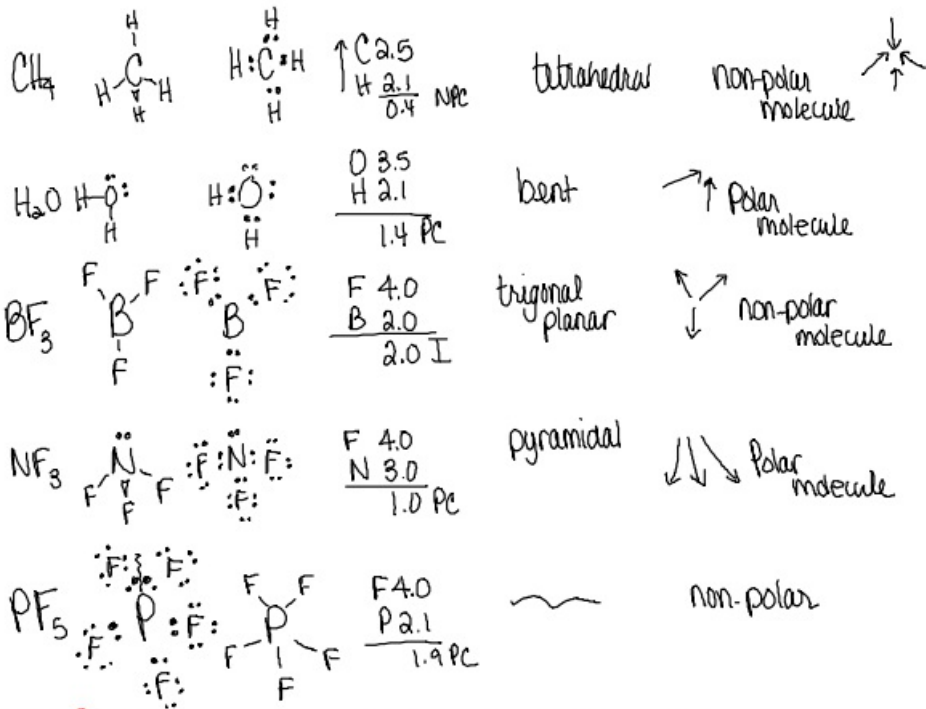 CH4 H C H H H H:C:H H C 2.5 H 2.1 0.4 NPC tetrahedral non-polar molecule
H2O H-O H H:O: H O 3.5 H 2.1 1.4 PC bent Polar molecule
BF3 F F B F F F B F F 4.0 B 2.0 2.0 I trigonal planar non-polar molecule
NF3 N F F F F N F F F 4.0 N 3.0 1.0 PC pyramidal Polar molecule
PF5 F F P F F F F F P F F F F 4.0 P 2.1 1.9 PC non-polar